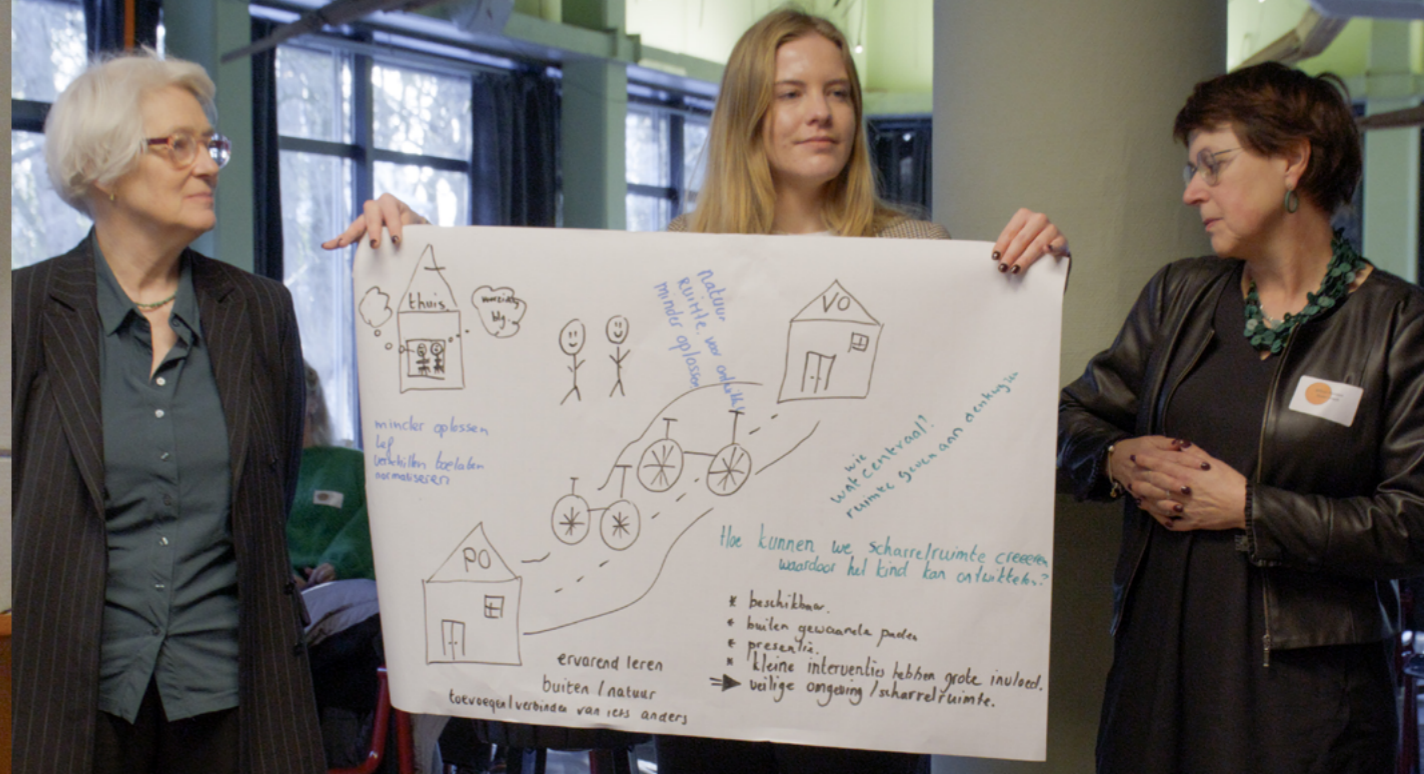 thuis
natuur
ruimte voor ontwikk
minder oplossen
VO
minder oplossen
lef
verschillen toelaten
normaliseren
wie
wat centraal?
ruimte geven aan
PO
Hoe kunnen we scharrelruimte creeeren
waardoor het kind kan ontwikkelen?
* beschikbaar.
* buiten gewaande paden
* presentie.
* kleine interventies hebben grote invloed.
veilige omgeving/scharrelruimte.
ervarend leren
buiten/natuur
toevoegen/verbinden van iets anders